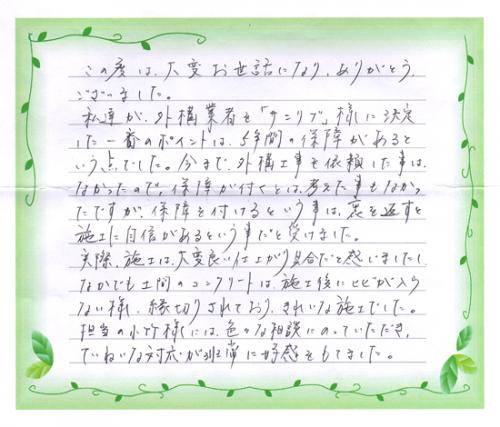 この度は、大変お世話になり、ありがとう
ございました。
私達が、外構業者を「サニリブ」様に決定
した一番のポイントは、5年間の保障があると
いう点でした。今まで、外構工事を依頼した事は、
なかったので、保障が付くとは、考えた事もなかっ
たですが、保障を付けるという事は、裏を返すと
施工に自信があるという事だと受けました。
実際、施工は、大変良い仕上がり具合だと感いましたし、
なかでも土間のコンクリートは、施工後にヒビが入ら
ない様、縁切りされており、きれいな施工でした。
担当の小竹様には、色々な相談にのっていただき、
ていねいな対応が非常に好感をもてました。